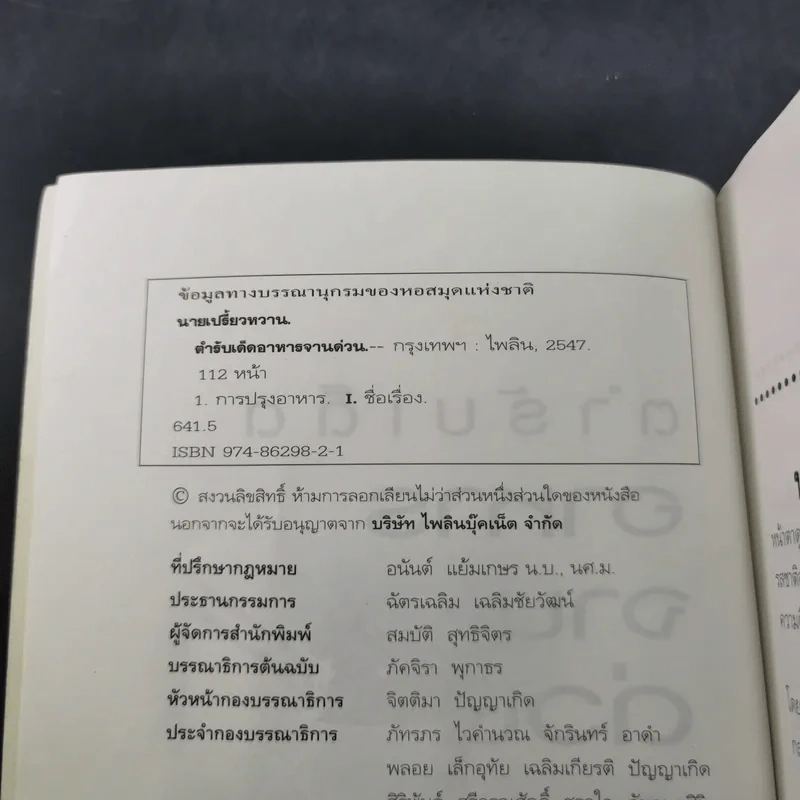 ข้อมูลทางบรรณานุกรมของหอสมุดแห่งชาติ
นายเปรี้ยวหวาน.
ตำรับเด็ดอาหารจานด่วน.-- กรุงเทพฯ : ไพลิน, 2547.
112 หน้า
1. การปรุงอาหาร. I. ชื่อเรื่อง.
641.5
ISBN 974-86298-2-1
© สงวนลิขสิทธิ์ ห้ามการลอกเลียนไม่ว่าส่วนหนึ่งส่วนใดของหนังสือ
นอกจากจะได้รับอนุญาตจาก บริษัท ไพลินบุ๊คเน็ต จำกัด
ที่ปรึกษากฎหมาย อนันต์ แย้มเกษร น.บ., นศ.ม.
ประธานกรรมการ ฉัตรเฉลิม เฉลิมชัยวัฒน์
ผู้จัดการสำนักพิมพ์ สมบัติ สุทธิจิตร
บรรณาธิการต้นฉบับ ภัคจิรา พุกาธร
หัวหน้ากองบรรณาธิการ จิตติมา ปัญญาเกิด
ประจำกองบรรณาธิการ ภัทรภร ไวคำนวณ จักรินทร์ อาดำ
พลอย เล็กอุทัย เฉลิมเกียรติ ปัญญาเกิด